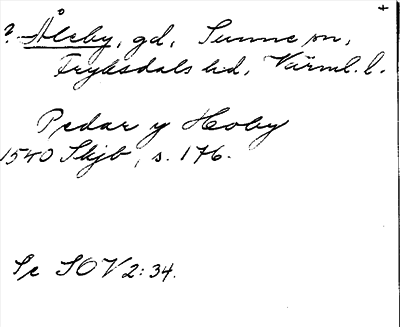 ? Åleby, gd, Sunne sn,
Fryksdals hd, Värml. l.
Pedar y Hoby
1540 Skjb, s. 176.
Se SOV 2:34.